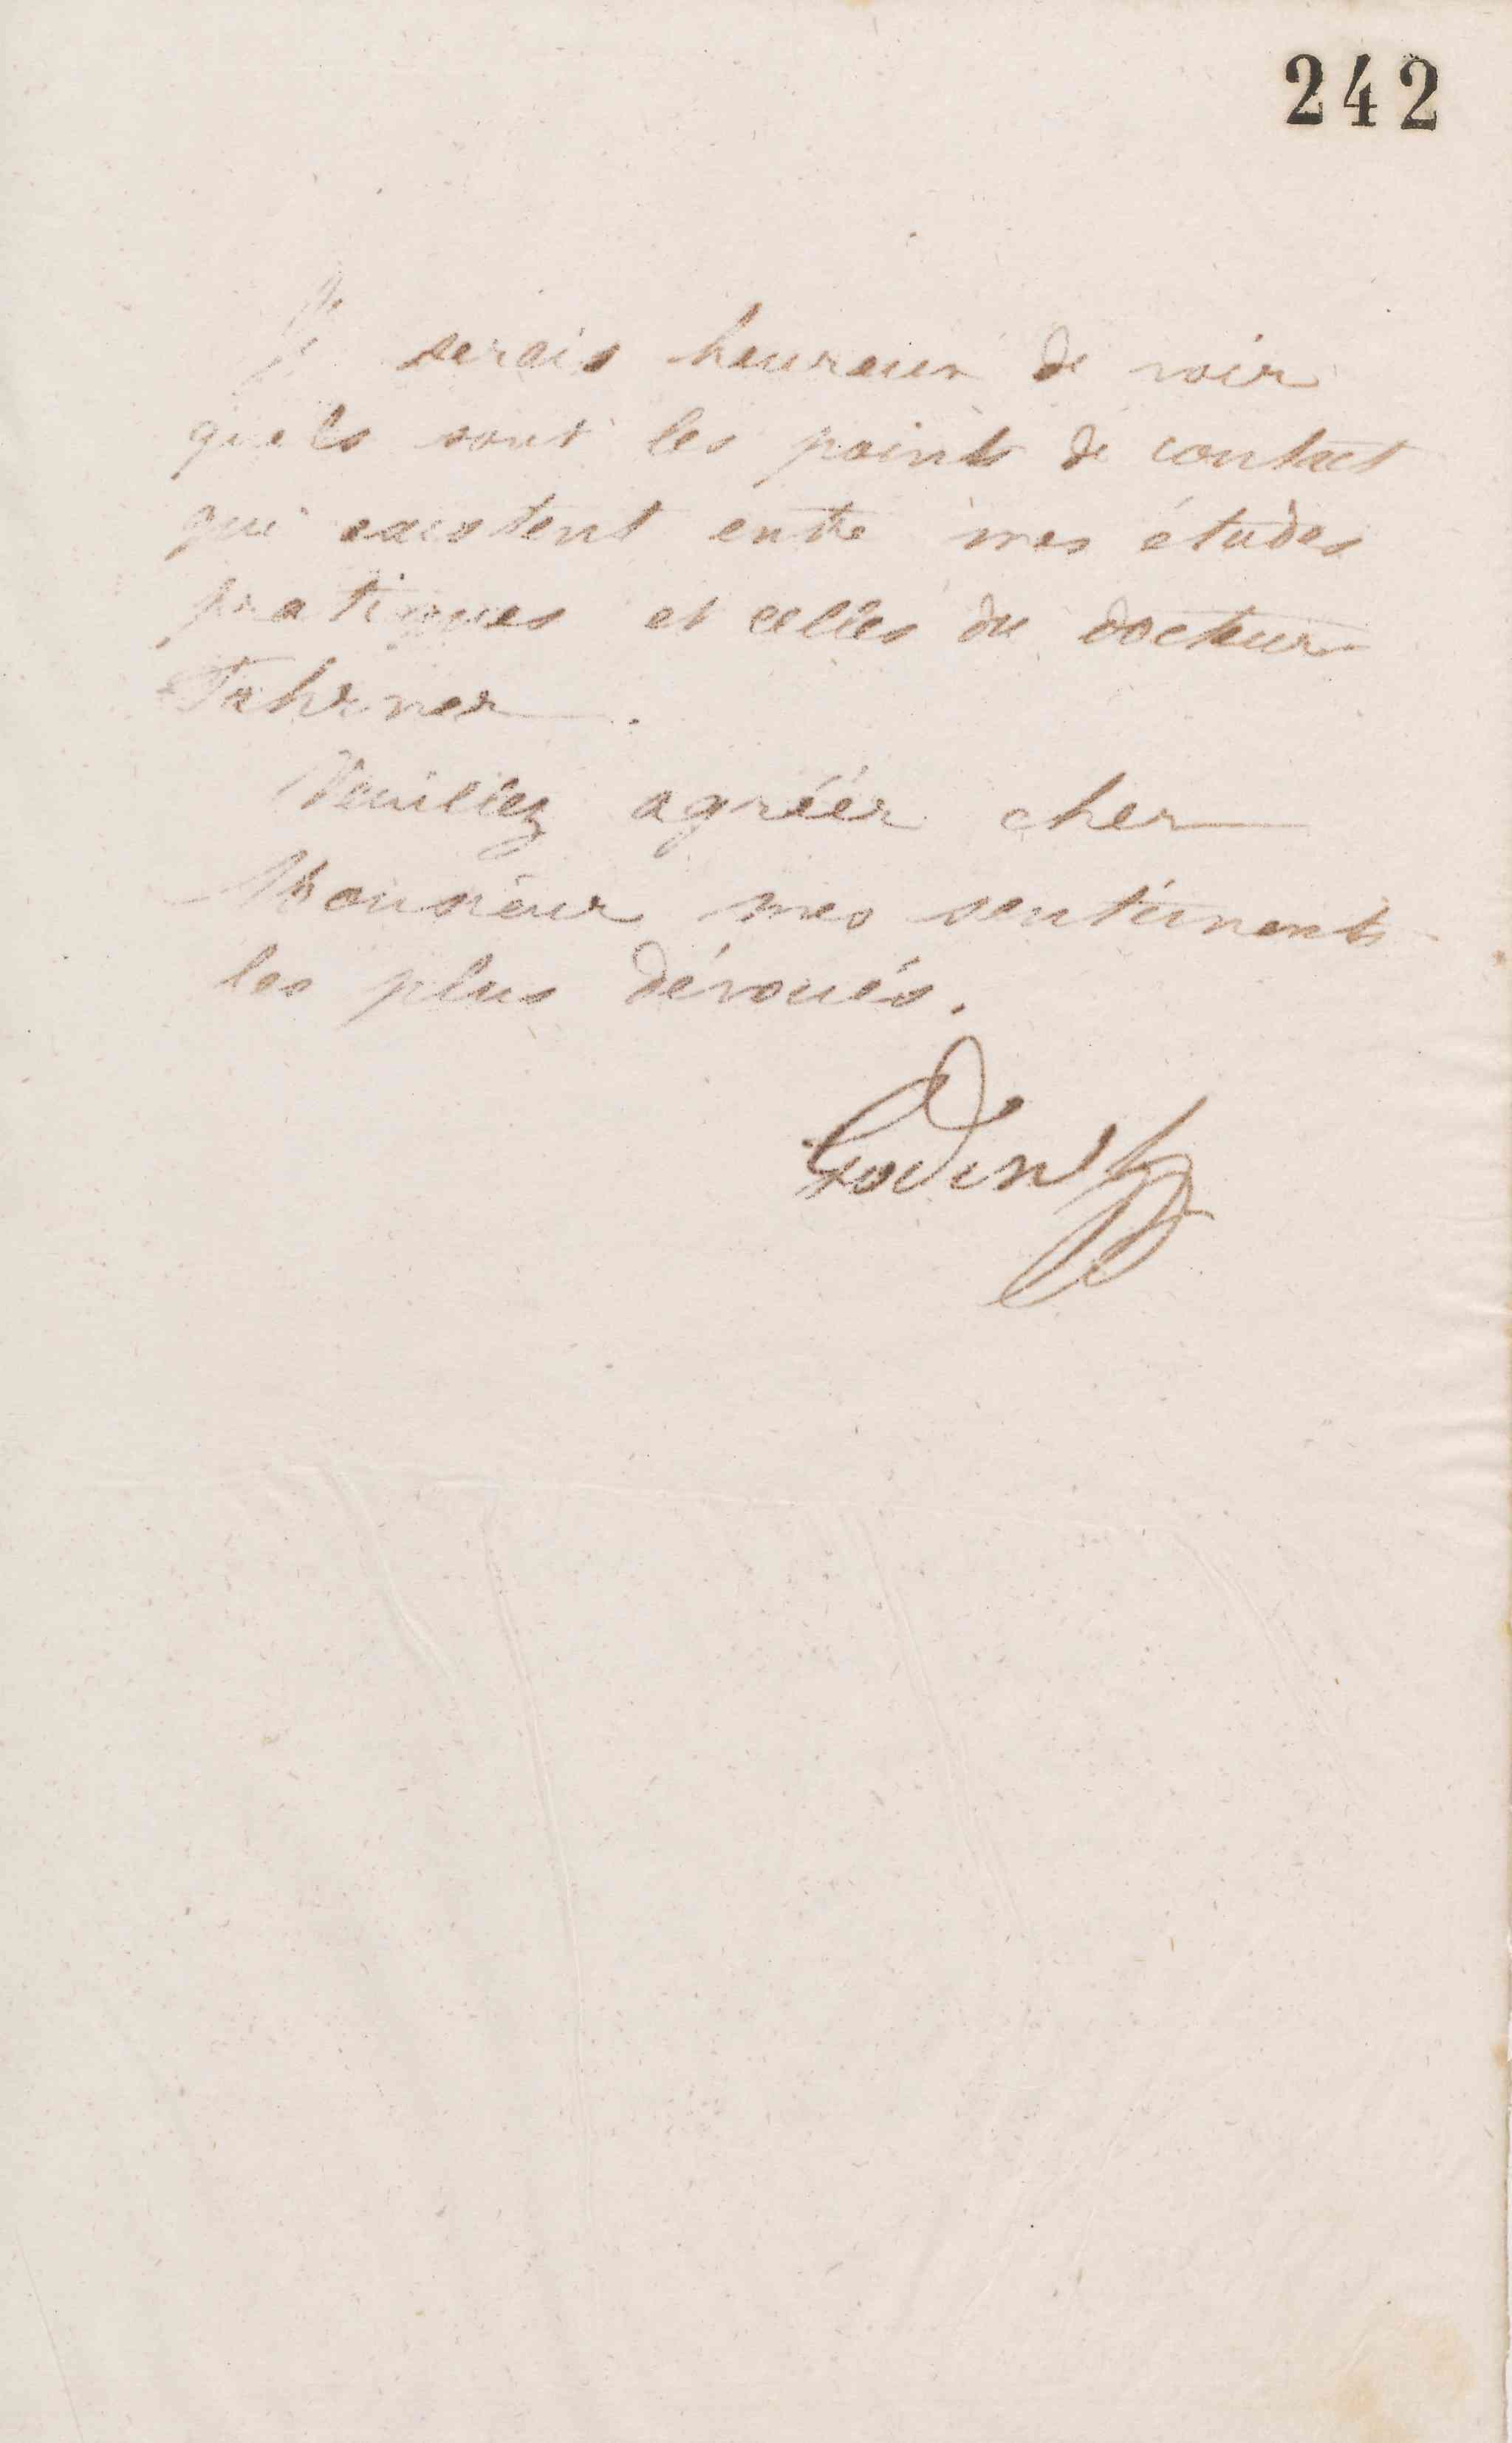 242
Je serais heureux de voir
quels sont les points de contact
qui existent entre mes études
pratiques et celles du docteur
Fahrner.
Veuillez agréer cher
Monsieur mes sentiments
les plus dévoués.
Godin